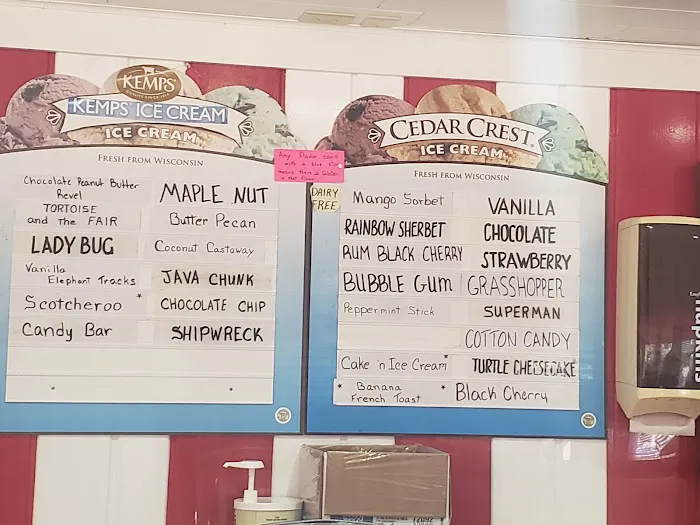 KEMPS
KEMPS ICE CREAM
ICE CREAM
FRESH FROM WISCONSIN
Chocolate Peanut Butter
Revel
TORTOISE
and the FAIR
LADY BUG
Vanilla
Elephant Tracks
Scotcheroo *
Candy Bar
MAPLE NUT
Butter Pecan
Coconut Castaway
JAVA CHUNK
CHOCOLATE CHIP
SHIPWRECK
Any flavor card
with a blue
means there is Gluten
in the flavor
DAIRY
FREE
CEDAR CREST
ICE CREAM
FRESH FROM WISCONSIN
Mango Sorbet
RAINBOW SHERBET
RUM BLACK CHERRY
BUBBLE GUM
Peppermint Stick
Cake 'n Ice Cream *
* Banana
French Toast
VANILLA
CHOCOLATE
STRAWBERRY
GRASSHOPPER
SUPERMAN
COTTON CANDY
TURTLE CHEESECAKE
* Black Cherry